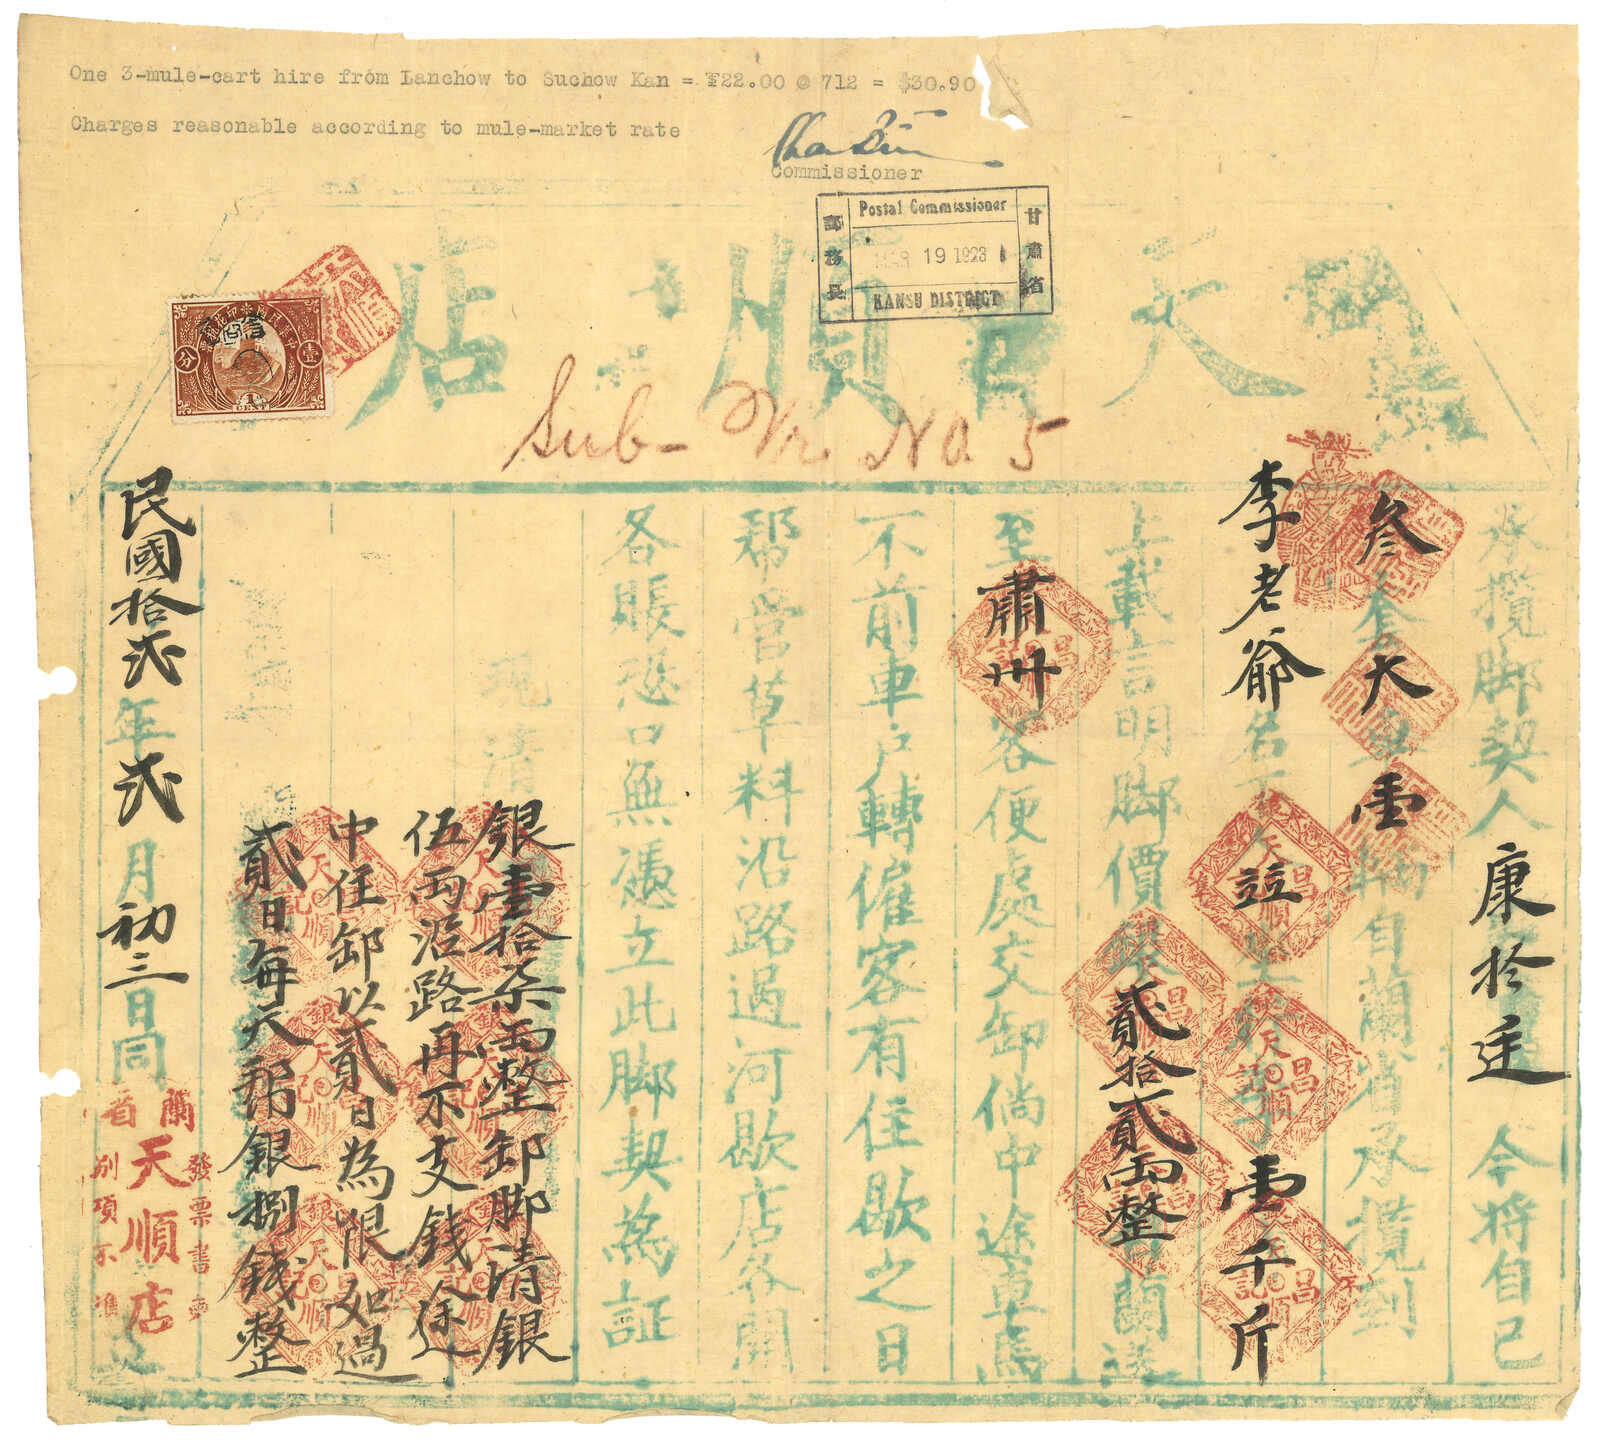 One 3-mule-cart hire from Lanchow to Suchow Kan = ¥22.00 @ 712 = $30.90
Charges reasonable according to mule-market rate
Commissioner
Postal Commissioner
甘肅省
郵務長
MAR 19 1923
KANSU DISTRICT
天順店
1 CENT
壹
分
Sub-Vr. No. 5
承攬脚契人康於廷今將自己
叁套大車壹輛自蘭省承攬到
李老爺名下
壹千斤
上載言明脚價銀貳拾貳兩整蘭送
至肅州客便處交卸倘中途車馬
不前車戶轉僱客有住歇之日
帮當草料沿路過河歇店各開
各賬恐口無憑立此脚契為証
現清銀壹拾柒兩整卸脚清銀
伍兩沿路再不支錢余途
中任卸以貳日為限如過
貳日每天帮銀捌錢整
民國拾貳年貳月初三日同
蘭省
天順店
發票書
別項不準